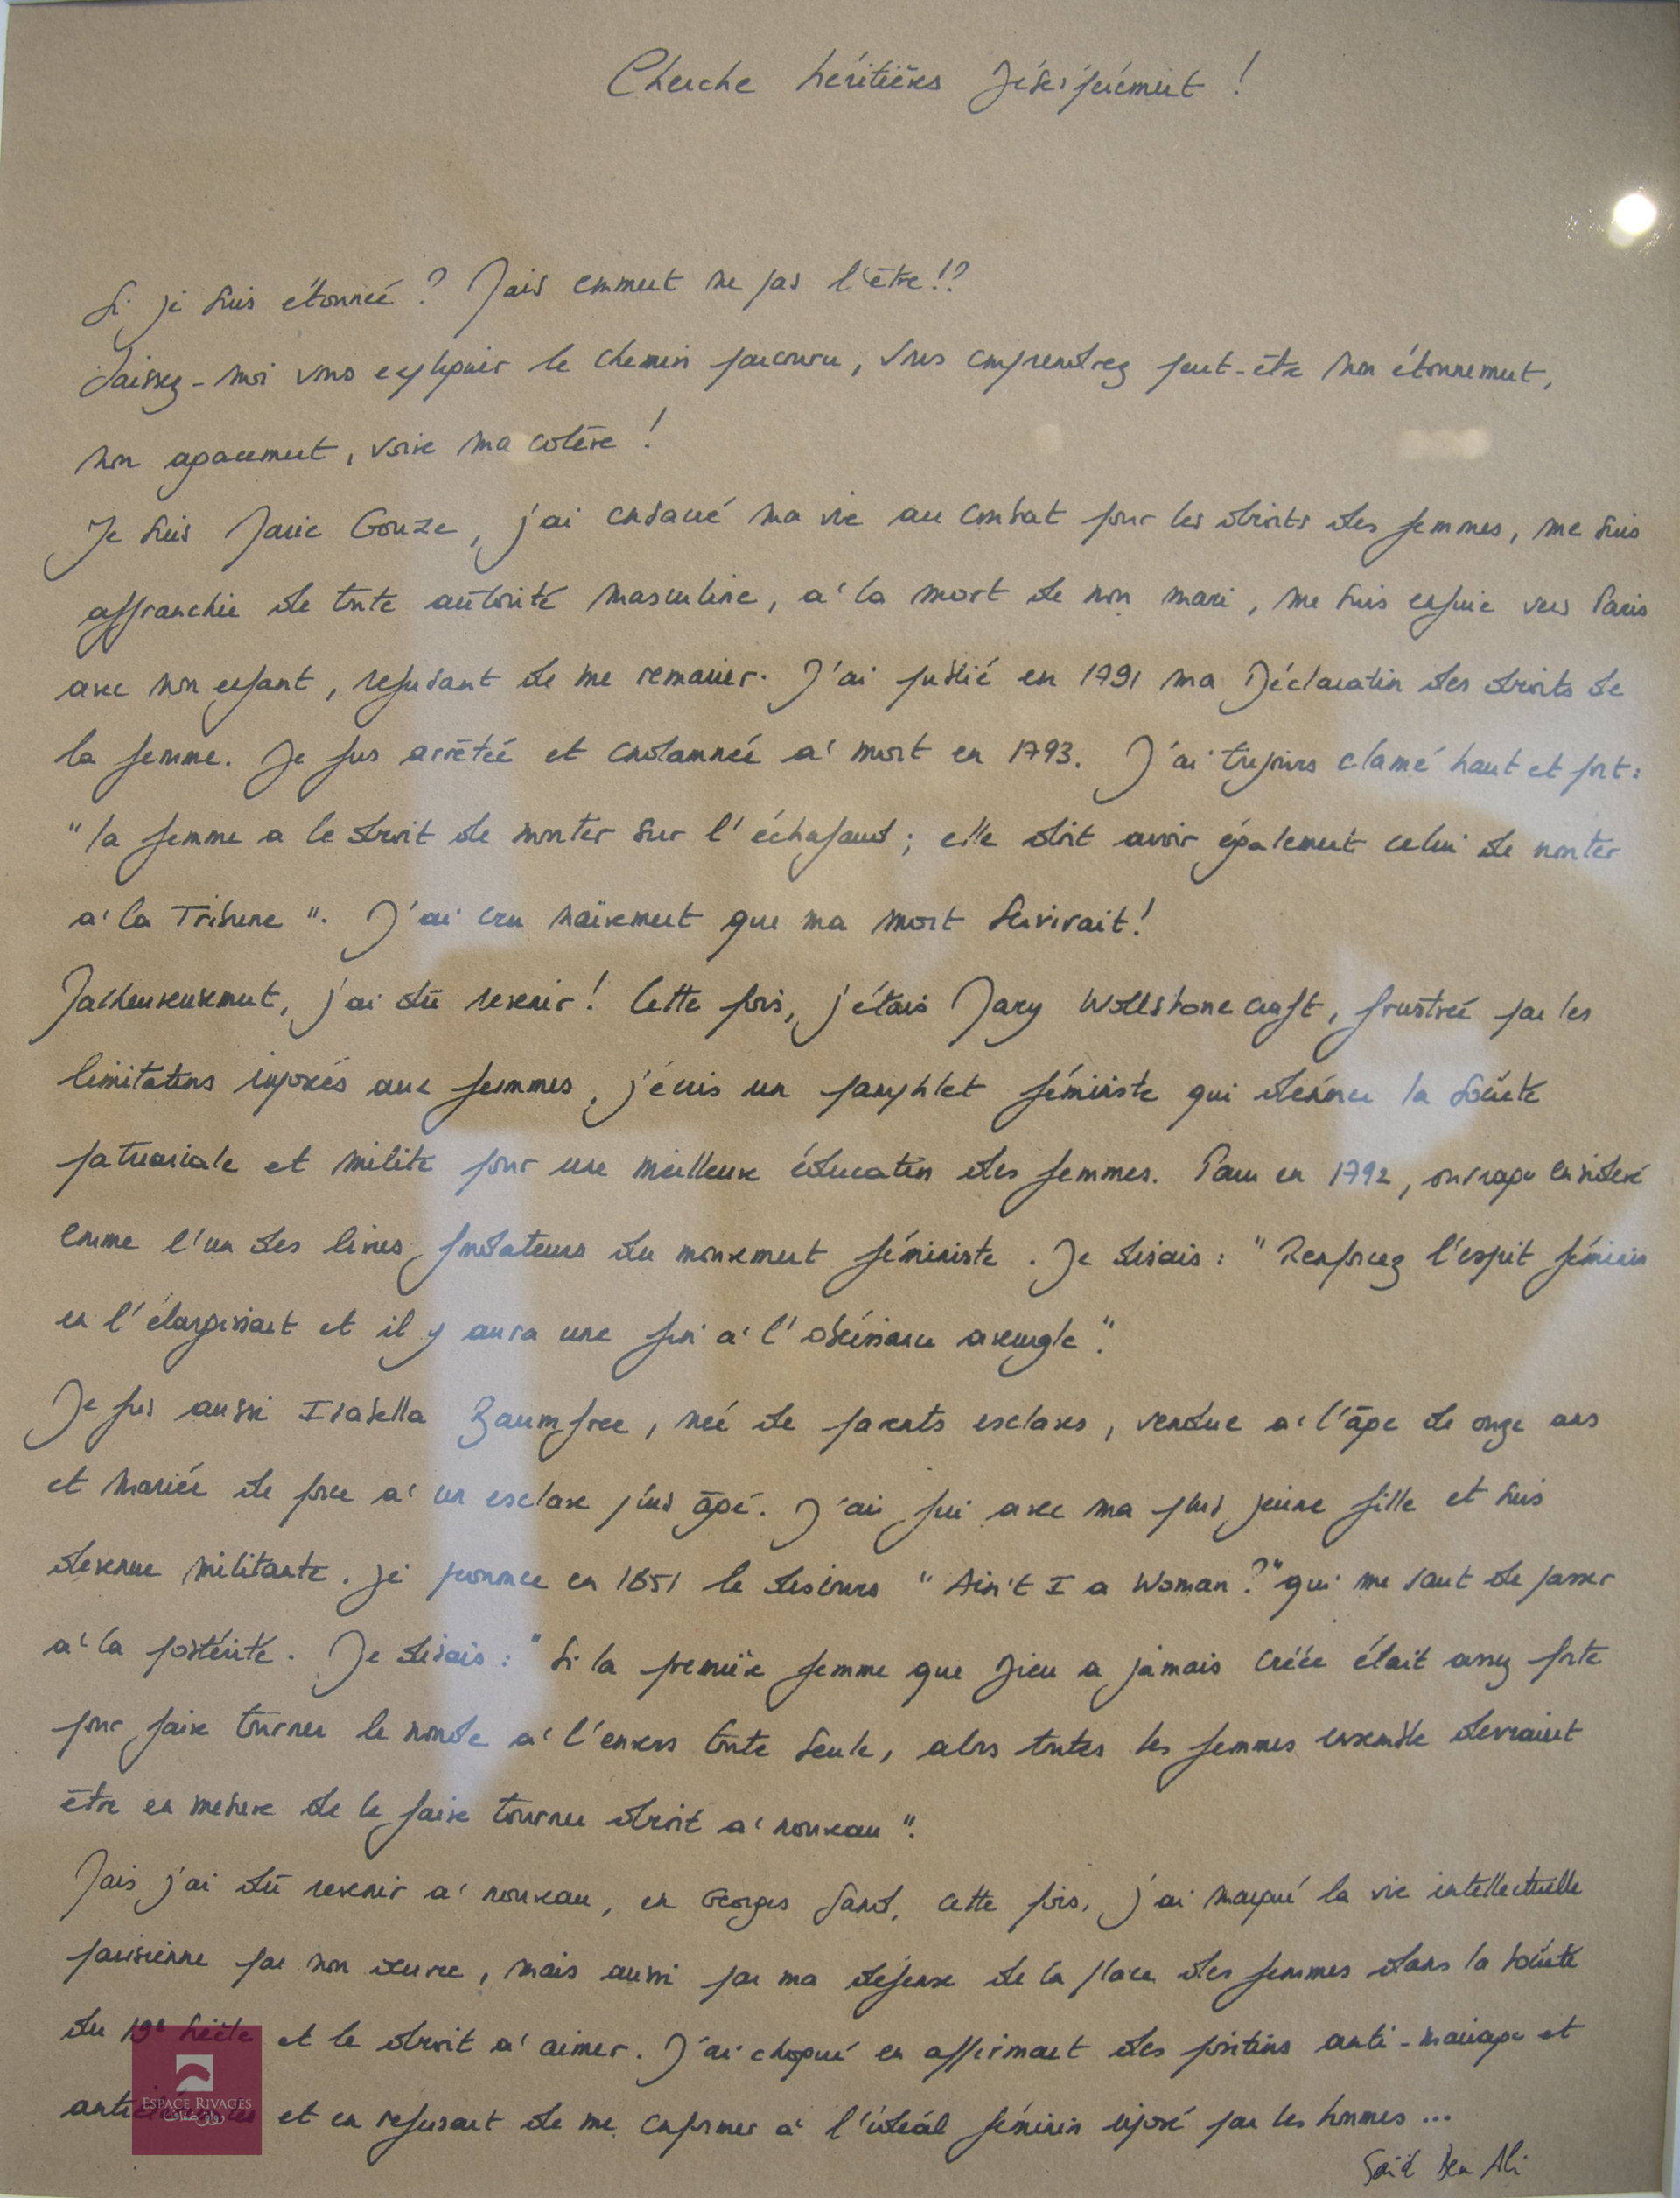 Cherche héritières désespérément !
Si je suis étonnée ? Mais comment ne pas l'être !?
Laissez-moi vous expliquer le chemin parcouru, vous comprendrez peut-être mon étonnement,
mon agacement, voire ma colère !
Je suis Marie Gouze, j'ai consacré ma vie au combat pour les droits des femmes, me suis
affranchie de toute autorité masculine, à la mort de mon mari, me suis enfuie vers Paris
avec mon enfant, refusant de me remarier. J'ai publié en 1791 ma Déclaration des droits de
la femme. Je fus arrêtée et condamnée à mort en 1793. J'ai toujours clamé haut et fort :
"la femme a le droit de monter sur l'échafaud ; elle doit avoir également celui de monter
à la Tribune". J'ai cru naïvement que ma mort servirait !
Malheureusement, j'ai dû revenir ! Cette fois, j'étais Mary Wollstonecraft, frustrée par les
limitations imposés aux femmes, j'écris un pamphlet féministe qui dénonce la société
patriarcale et milite pour une meilleure éducation des femmes. Paru en 1792, ouvrage considéré
comme l'un des livres fondateurs du mouvement féministe. Je disais : "Renforcez l'esprit féminin
en l'élargissant et il y aura une fin à l'obéissance aveugle".
Je fus aussi Isabella Baumfree, née de parents esclaves, vendue à l'âge de onze ans
et mariée de force à un esclave plus âgé. J'ai fui avec ma plus jeune fille et suis
devenue militante. Je prononce en 1851 le discours "Ain't I a Woman ?" qui me vaut de passer
à la postérité. Je disais : "Si la première femme que Dieu a jamais créée était assez forte
pour faire tourner le monde à l'envers toute seule, alors toutes les femmes ensemble devraient
être en mesure de le faire tourner droit à nouveau".
Mais j'ai dû revenir à nouveau, en Georges Sand, cette fois, j'ai marqué la vie intellectuelle
parisienne par mon œuvre, mais aussi par ma défense de la place des femmes dans la société
du 19e siècle et le droit à aimer. J'ai choqué en affirmant des positions anti-mariage et
et en refusant de me conformer à l'idéal féminin imposé par les hommes ...
Saïd Ben Ali
ESPACE RIVAGES
رواق ضفاف